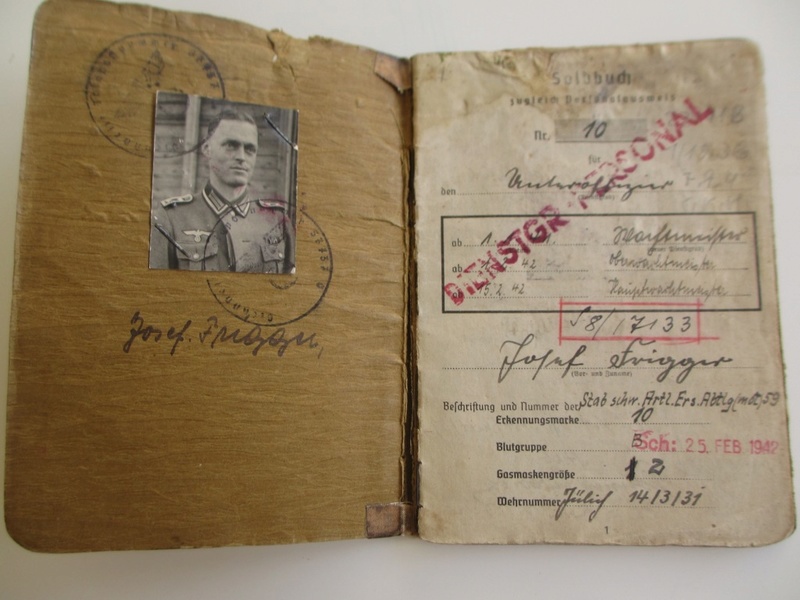 Josef Frigger
Soldbuch
zugleich Personalausweis
Nr. 10
für
den Unteroffizier
DIENSTGR. PERSONAL
ab 1. Wachtmeister
ab 42 Oberwachtmeister
15.2.42 Hauptwachtmeister
S8/17133
Josef Frigger
(Vor- und Zuname)
Beschriftung und Nummer der Stab schw. Artl. Ers. Abtlg (mot) 59
Erkennungsmarke 10
Blutgruppe B
Sch: 25. FEB 1942
Gasmaskengröße 12
Wehrnummer Jülich 14/3/31
1